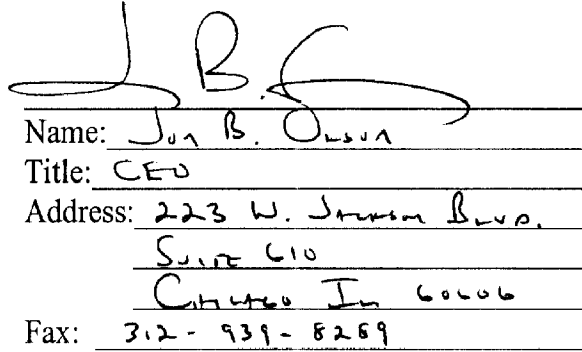 J B.
Name: Jon B. Olson
Title: CEO
Address: 223 W. Jackson Blvd.
Suite 610
Chicago IL 60606
Fax: 312-939-8269